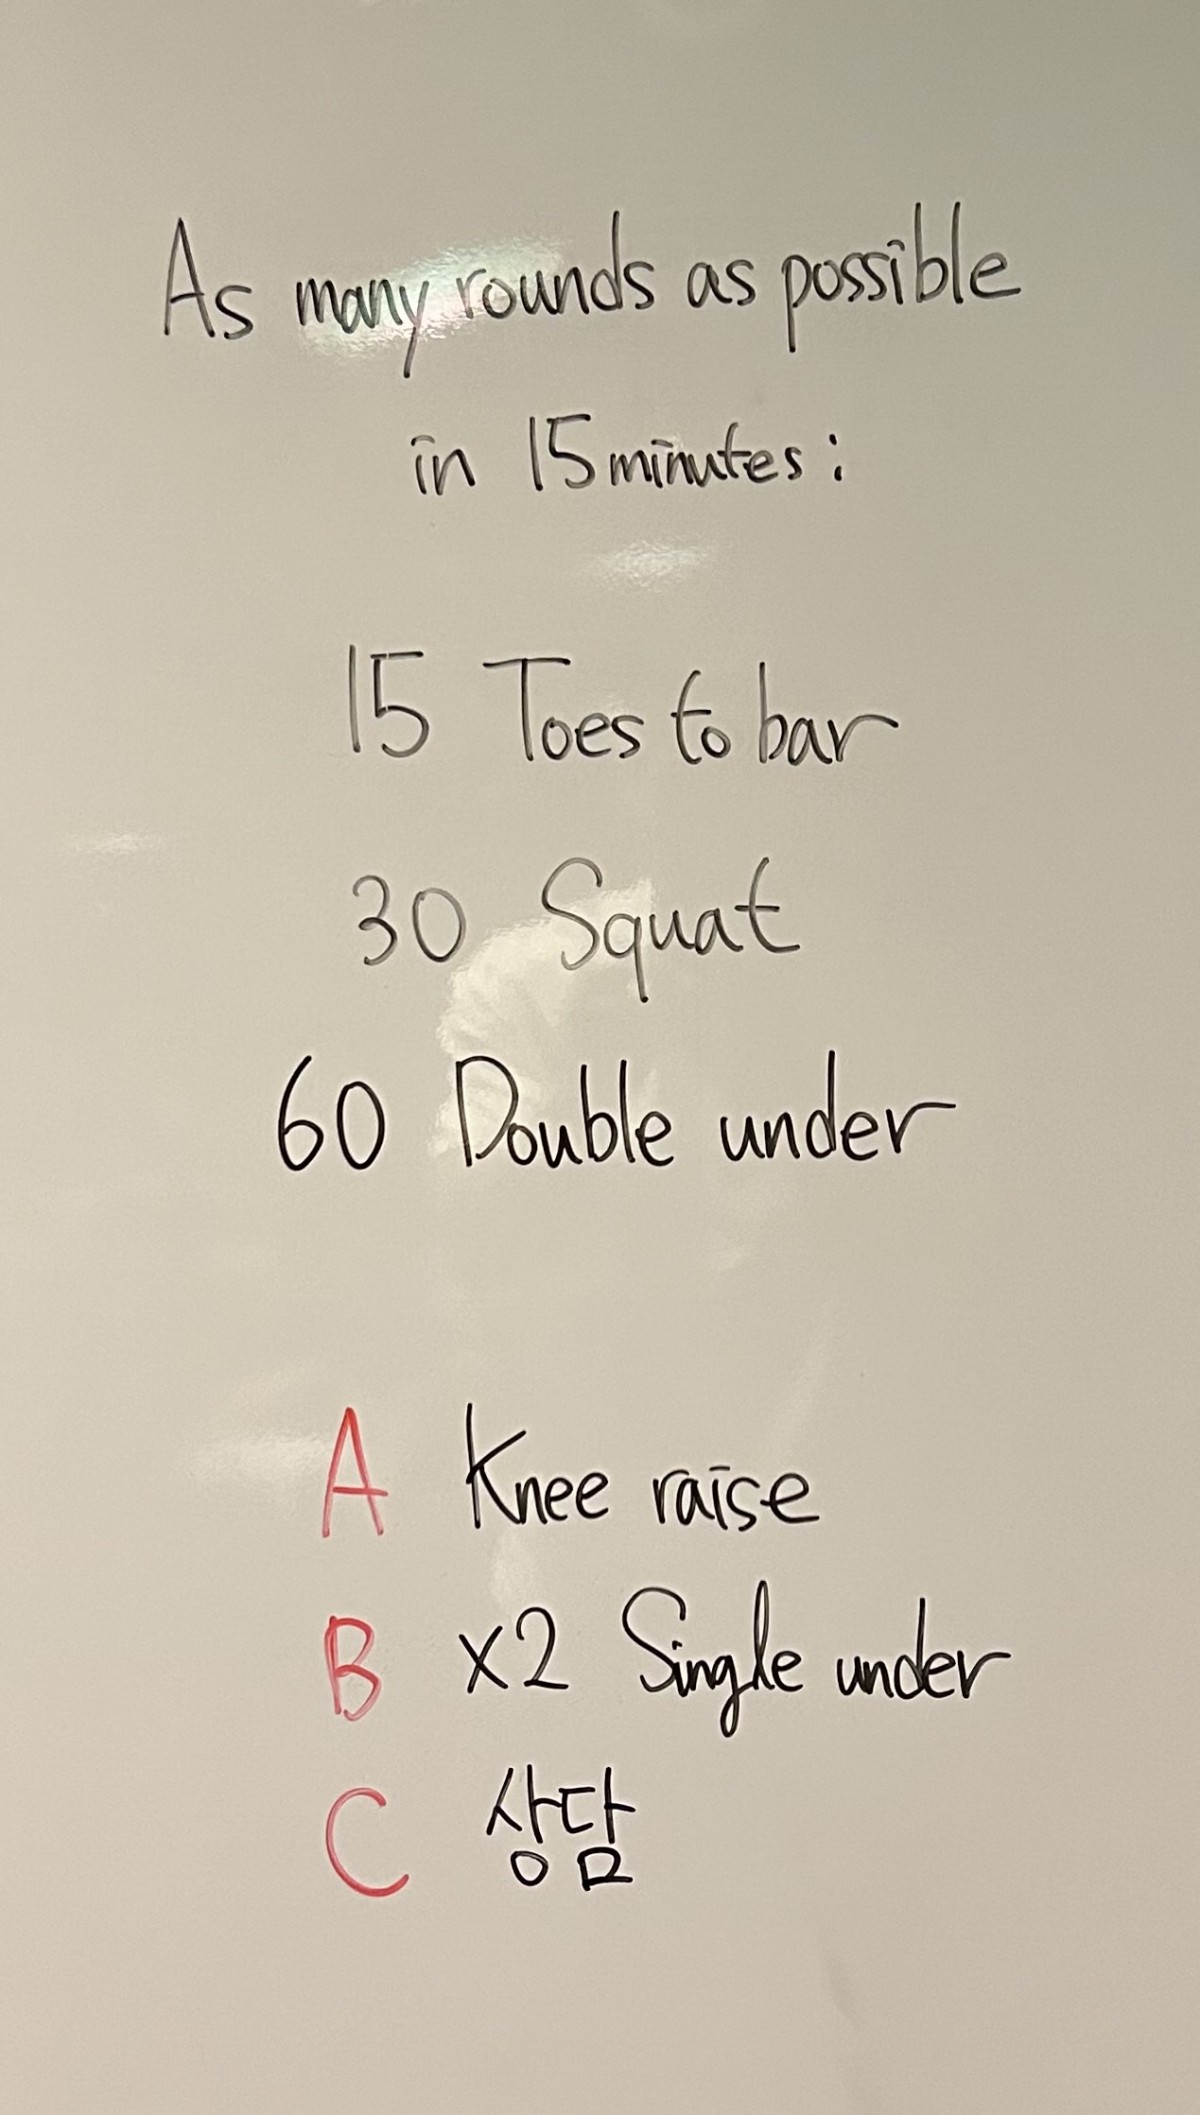 As many rounds as possible
in 15 minutes:
15 Toes to bar
30 Squat
60 Double under
A Knee raise
B x2 Single under
C 상담